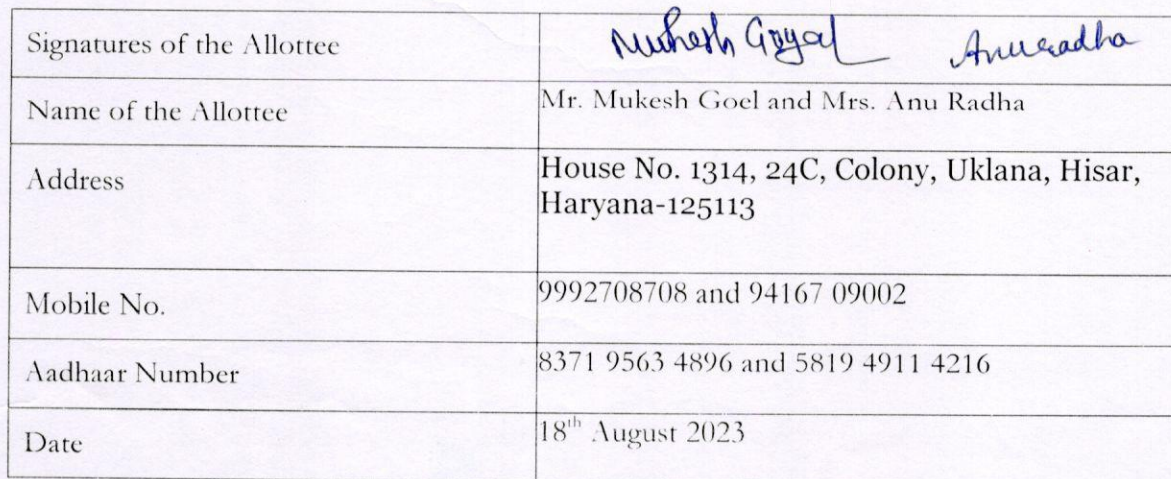 Signatures of the Allottee Mukesh Goyal Anuradha
Name of the Allottee Mr. Mukesh Goel and Mrs. Anu Radha
Address House No. 1314, 24C, Colony, Uklana, Hisar,
Haryana-125113
Mobile No. 9992708708 and 94167 09002
Aadhaar Number 8371 9563 4896 and 5819 4911 4216
Date 18th August 2023